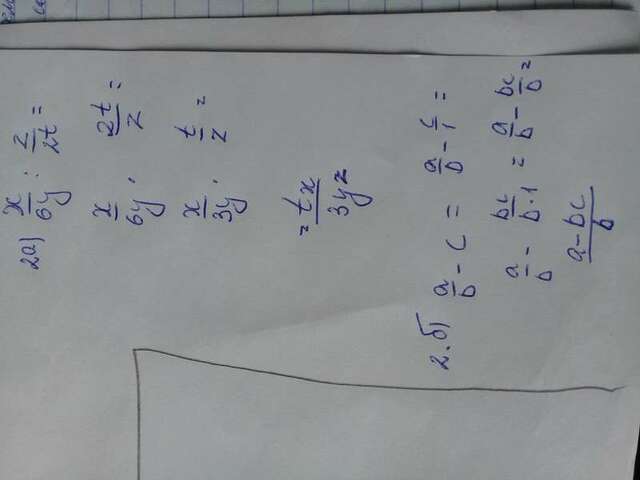 2a) x/6y : z/2t =
x/6y · 2t/z =
x/3y · t/z =
= tx/3yz
2.б) a/b - c = a/b - c/1 =
a/b - bc/b·1 = a/b - bc/b =
a-bc/b